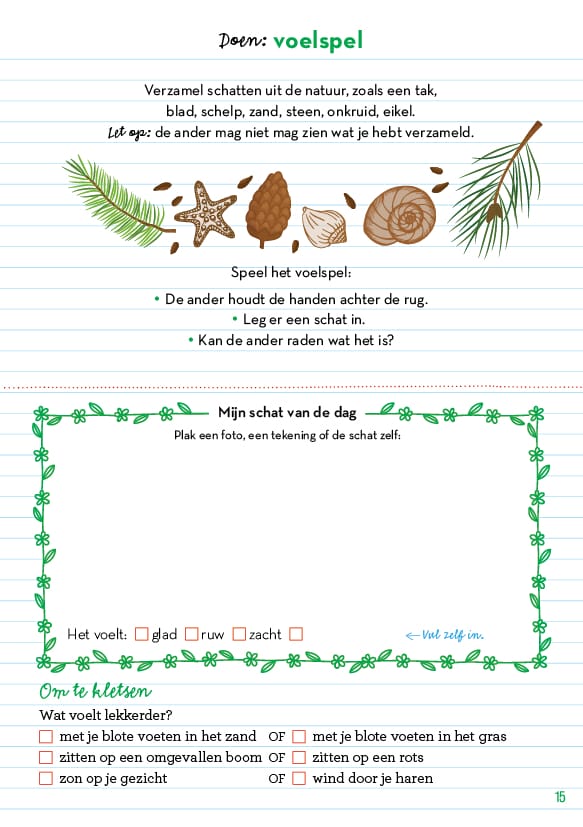 Doen: voelspel
Verzamel schatten uit de natuur, zoals een tak,
blad, schelp, zand, steen, onkruid, eikel.
Let op: de ander mag niet mag zien wat je hebt verzameld.
Speel het voelspel:
• De ander houdt de handen achter de rug.
• Leg er een schat in.
• Kan de ander raden wat het is?
Mijn schat van de dag
Plak een foto, een tekening of de schat zelf:
Het voelt: glad ruw zacht ← Vul zelf in.
Om te kletsen
Wat voelt lekkerder?
met je blote voeten in het zand OF met je blote voeten in het gras
zitten op een omgevallen boom OF zitten op een rots
zon op je gezicht OF wind door je haren
15